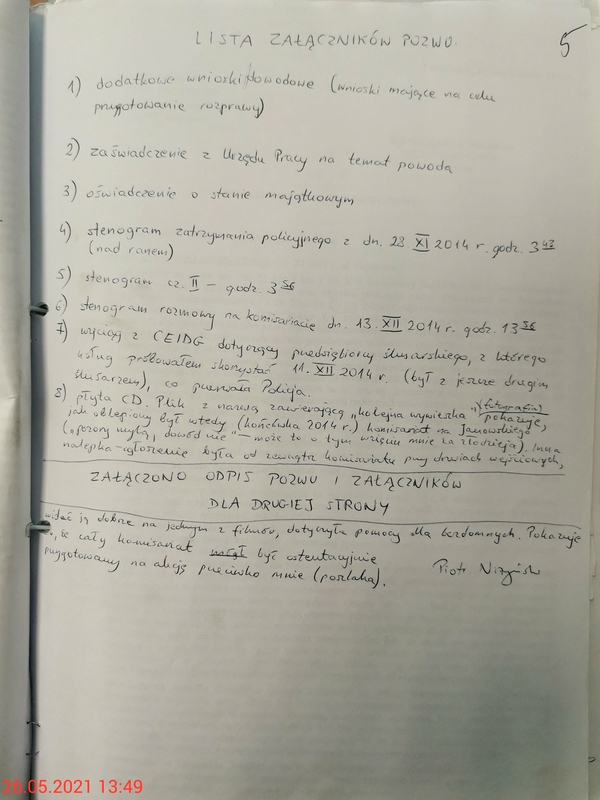 LISTA ZAŁĄCZNIKÓW POZWU.
5
1) dodatkowe wnioski dowodowe (wnioski mające na celu
przygotowanie rozprawy)
2) zaświadczenie z Urzędu Pracy na temat powoda
3) oświadczenie o stanie majątkowym
4) stenogram zatrzymania policyjnego z dn. 28 XI 2014 r. godz. 3 43
(nad ranem)
5) stenogram cz. II – godz. 3 56
6) stenogram rozmowy na komisariacie dn. 13. XII 2014 r. godz. 13 56
7) wyciąg z CEIDG dotyczący przedsiębiorcy ślusarskiego, z którego
usług próbowałem skorzystać 11. XII 2014 r. (był z jeszcze drugim
ślusarzem), co przerwała Policja.
8) płyta CD. Plik z nazwą zawierającą „kolejna wywieszka” (fotografia) pokazuje,
jak oblepiony był wtedy (końcówka 2014 r.) komisariat na Janowskiego
(„pozory mylą, dowód nie” — może to o tym wzięciu mnie za złodzieja). Inna
nalepka-ogłoszenie była od zewnątrz komisariatu przy drzwiach wejściowych,
ZAŁĄCZONO ODPIS POZWU I ZAŁĄCZNIKÓW
DLA DRUGIEJ STRONY
widać ją dobrze na jednym z filmów, dotyczyła pomocy dla bezdomnych. Pokazuje
to, że cały komisariat mógł być ostentacyjnie
przygotowany na akcję przeciwko mnie (poszlaka).
Piotr Niżyński
26.05.2021 13:49